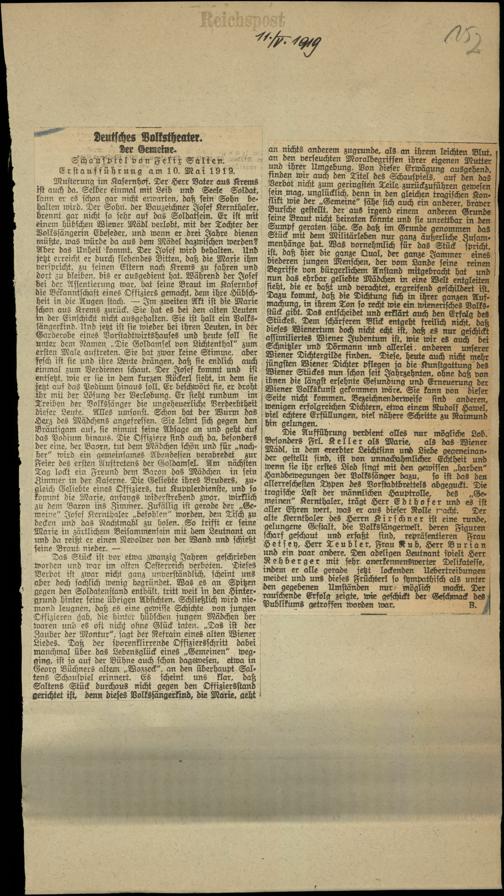 Reichspost
11./V. 1919
152
Deutsches Volkstheater.
Der Gemeine.
Schauspiel von Felix Salten.
Erstaufführung am 10. Mai 1919.
Musterung im Kasernhof. Der Herr Vater aus Krems
ist auch da. Selber einmal mit Leib und Seele Soldat,
kann er es schon gar nicht erwarten, daß sein Sohn be-
halten wird. Der Sohn, der Bauzeichner Josef Kernthaler,
brennt gar nicht so sehr auf das Soldatsein. Er ist mit
einem hübschen Wiener Mädel verlobt, mit der Tochter der
Volkssängerin Ebeseder, und wenn er drei Jahre dienen
müßte, was würde da aus dem Mädel dazwischen werden?
Aber das Unheil kommt. Der Josef wird behalten. Und
jetzt erreicht er durch flehendes Bitten, daß die Marie ihm
verspricht, zu seinen Eltern nach Krems zu fahren und
dort zu bleiben, bis er ausgedient hat. Während der Josef
bei der Assentierung war, hat seine Braut im Kasernhof
die Bekanntschaft eines Offiziers gemacht, dem ihre Hübsch-
heit in die Augen stach. — Im zweiten Akt ist die Marie
schon aus Krems zurück. Sie hat es bei den alten Leuten
in der Einschicht nicht ausgehalten. Sie ist halt ein Volks-
sängerkind. Und jetzt ist sie wieder bei ihren Leuten, in der
Garderobe eines Vorstadtwirtshauses und heute soll sie
unter dem Namen „Die Goldamsel von Lichtenthal" zum
ersten Male auftreten. Sie hat zwar keine Stimme, aber
fesch ist sie und ihre Leute drängen, daß sie endlich auch
einmal zum Verdienen schaut. Der Josef kommt und ist
entsetzt, wie er sie in dem kurzen Röckerl sieht, in dem sie
jetzt auf das Podium hinaus soll. Er beschwört sie, er droht
ihr mit der Lösung der Verlobung. Er sieht rundum im
Treiben der Volkssänger die ungeheuerliche Verderbtheit
dieser Leute. Alles umsonst. Schon hat der Wurm das
Herz des Mädchens angefressen. Sie lehnt sich gegen den
Bräutigam auf, sie nimmt seine Absage an und geht auf
das Podium hinaus. Die Offiziere sind auch da, besonders
der eine, der Baron, tut dem Mädchen schön und für „nach-
her" wird ein gemeinsames Abendessen verabredet zur
Feier des ersten Auftretens der Goldamsel. Am nächsten
Tag lockt ein Freund dem Baron das Mädchen in sein
Zimmer in der Kaserne. Die Geliebte ihres Bruders, zu-
gleich Geliebte eines Offiziers, tut Kupplerdienste, und so
kommt die Marie, anfangs widerstrebend zwar, wirklich
zu dem Baron ins Zimmer. Zufällig ist gerade der „Ge-
meine" Josef Kernthaler „befohlen" worden, den Tisch zu
decken und das Nachtmahl zu holen. So trifft er seine
Marie in zärtlichem Beisammensein mit dem Leutnant an
und da reißt er einen Revolver von der Wand und schießt
seine Braut nieder. —
Das Stück ist vor etwa zwanzig Jahren geschrieben
worden und war im alten Oesterreich verboten. Dieses
Verbot ist zwar nicht ganz unverständlich, scheint uns
aber doch sachlich wenig begründet. Was es an Spitzen
gegen den Soldatenstand enthält, tritt weit in den Hinter-
grund hinter seine übrigen Absichten. Schließlich wird nie-
mand leugnen, daß es eine gewisse Schichte von jungen
Offizieren gab, die hinter hübschen jungen Mädchen her
waren und es oft nicht ohne Glück taten. „Das ist der
Zauber der Montur", sagt der Refrain eines alten Wiener
Liedes. Daß der sporenklirrende Offiziersschritt dabei
manchmal über das Lebensglück eines „Gemeinen" weg-
ging, ist ja auf der Bühne auch schon dagewesen, etwa in
Georg Büchners altem „Wozzeck", an den überhaupt Sal-
tens Schauspiel erinnert. Es scheint uns klar, daß
Saltens Stück durchaus nicht gegen den Offiziersstand
gerichtet ist, denn dieses Volksjängerkind, die Marie, geht
an nichts anderem zugrunde, als an ihrem leichten Blut,
an den verseuchten Moralbegriffen ihrer eigenen Mutter
und ihrer Umgebung. Von dieser Erwägung ausgehend,
finden wir auch den Titel des Schauspiels, auf den das
Verbot nicht zum geringsten Teile zurückzuführen gewesen
sein mag, unglücklich, denn in den gleichen tragischen Kon-
flikt wie der „Gemeine" sähe sich auch ein anderer, braver
Bursche gestellt, der aus irgend einem anderen Grunde
seine Braut nicht heiraten könnte und sie unrettbar in den
Sumpf geraten sähe. So daß im Grunde genommen das
Stück mit dem Militärleben nur ganz äußerliche Zusam-
menhänge hat. Was vornehmlich für das Stück spricht,
ist, daß hier die ganze Qual, der ganze Jammer eines
biederen jungen Menschen, der vom Lande seine reinen
Begriffe von bürgerlichem Anstand mitgebracht hat und
nun das ehrbar geliebte Mädchen in eine Welt entgleiten
sieht, die er haßt und verachtet, ergreifend geschildert ist.
Dazu kommt, daß die Dichtung sich in ihrer ganzen Auf-
machung, in ihrem Ton so recht wie ein wienerisches Volks-
stück gibt. Das entscheidet und erklärt auch den Erfolg des
Stückes. Dem schärferen Blick entgeht freilich nicht, daß
dieses Wienertum doch nicht echt ist, daß es nur geschickt
assimiliertes Wiener Judentum ist, wie wir es auch bei
Schnitzler und Dörmann und allerlei anderen unserer
Wiener Dichtergilde finden. Diese, heute auch nicht mehr
jüngsten Wiener Dichter pflegen ja die Kunstgattung des
Wiener Stückes nun schon seit Jahrzehnten, ohne daß von
ihnen die längst ersehnte Gesundung und Erneuerung der
Wiener Volkskunst gekommen wäre. Sie kann von dieser
Seite nicht kommen. Bezeichnenderweise sind anderen,
weniger erfolgreichen Dichtern, etwa einem Rudolf Hawel,
viel echtere Erfüllungen, viel nähere Schritte zu Raimund
hin gelungen.
Die Aufführung verdient alles nur mögliche Lob.
Besonders Frl. Keller als Marie, als das Wiener
Mädl, in dem ererbter Leichtsinn und Liebe gegeneinan-
der gestellt sind, ist von unnachahmlicher Echtheit und
wenn sie ihr erstes Lied singt mit den gewissen „harben"
Handbewegungen der Volkssänger dazu, so ist das den
allerreschesten Typen des Vorstadtbrettels abgeguckt. Die
tragische Last der männlichen Hauptrolle, des „Ge-
meinen" Kernthaler, trägt Herr Edthofer und es ist
aller Ehren wert, was er aus dieser Rolle macht. Der
alte Kernthaler des Herrn Kirschner ist eine runde,
gelungene Gestalt, die Volkssängerwelt, deren Figuren
scharf geschaut und erfaßt sind, repräsentieren Frau
Hetsey, Herr Teubler, Frau Rub, Herr Burian
und ein paar andere. Den adeligen Leutnant spielt Herr
Rehberger mit sehr anerkennenswerter Delikatesse,
indem er alle gerade jetzt lockenden Uebertreibungen
meidet und uns dieses Früchterl so sympathisch als unter
den gegebenen Umständen nur möglich macht. Der
rauschende Erfolg zeigte, wie geschickt der Geschmack des
Publikums getroffen worden war. B.